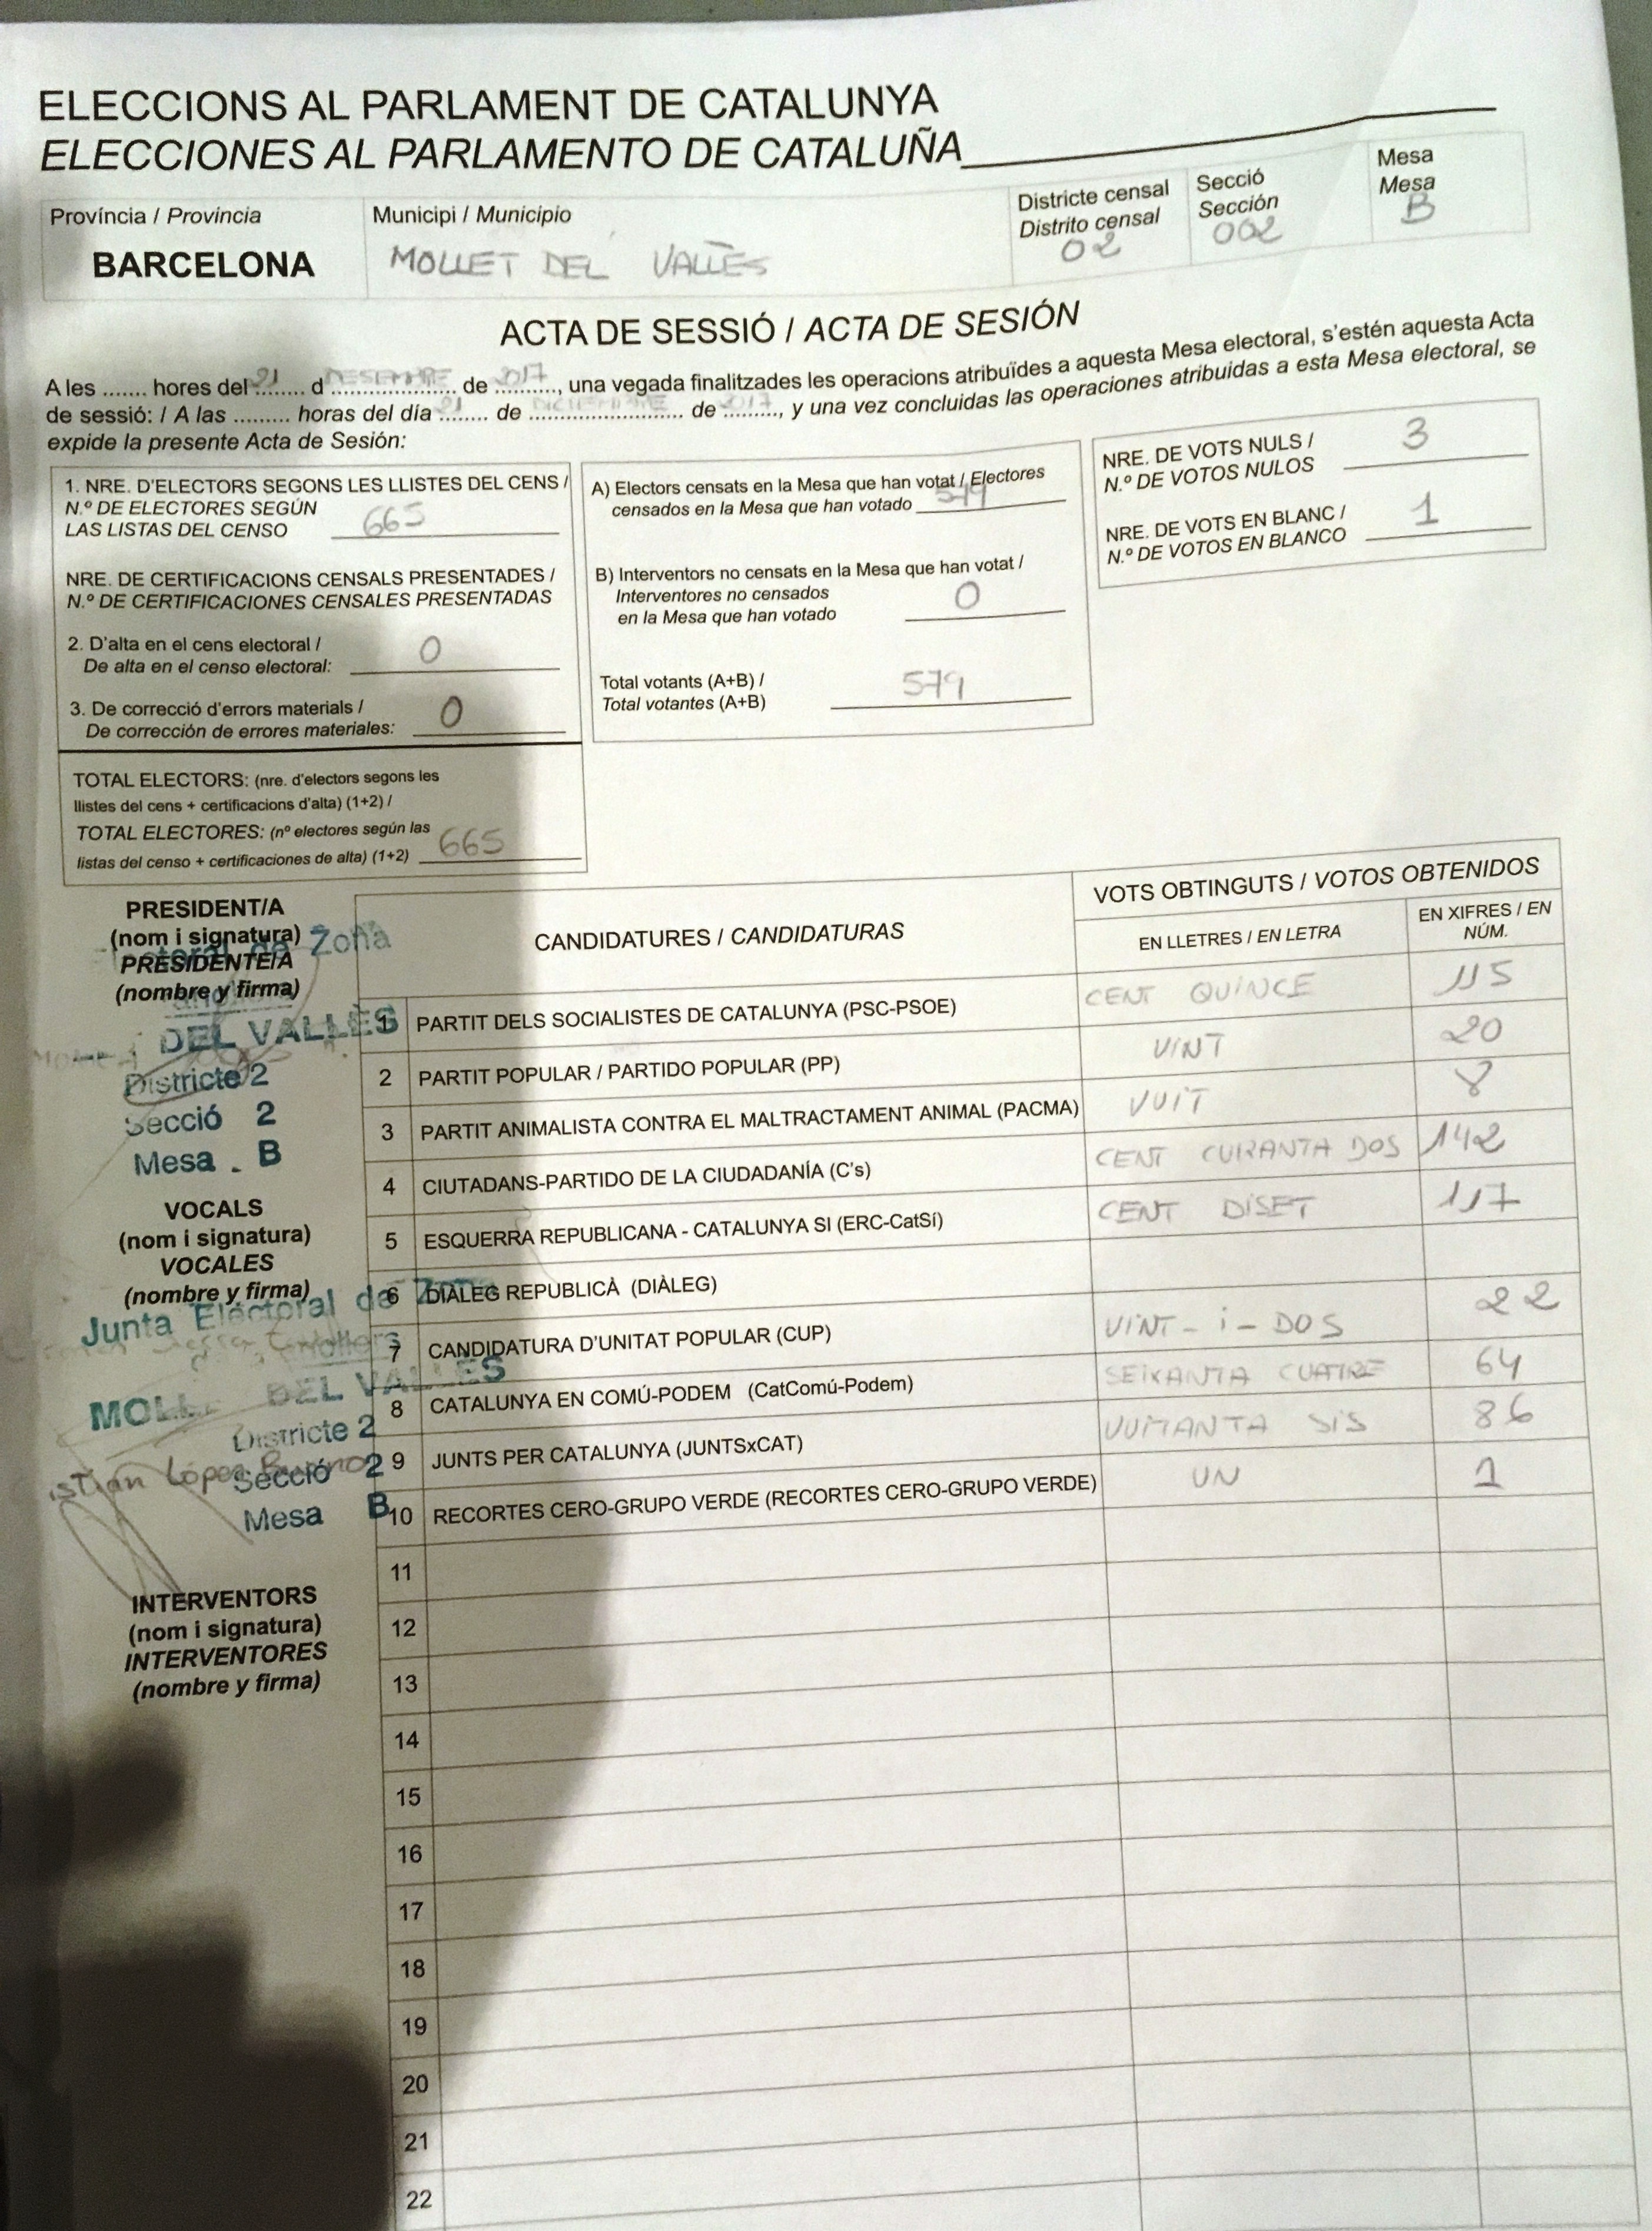 ELECCIONS AL PARLAMENT DE CATALUNYA
ELECCIONES AL PARLAMENTO DE CATALUÑA
Província / Provincia
BARCELONA
Municipi / Municipio
MOLLET DEL VALLÈS
Districte censal
Distrito censal
02
Secció
Sección
002
Mesa
Mesa
B
ACTA DE SESSIÓ / ACTA DE SESIÓN
A les ....... hores del 21 d DESEMBRE de 2017, una vegada finalitzades les operacions atribuïdes a aquesta Mesa electoral, s'estén aquesta Acta
de sessió: / A las ......... horas del día 21 de DICIEMBRE de 2017, y una vez concluidas las operaciones atribuidas a esta Mesa electoral, se
expide la presente Acta de Sesión:
1. NRE. D'ELECTORS SEGONS LES LLISTES DEL CENS /
N.º DE ELECTORES SEGÚN
LAS LISTAS DEL CENSO 665
NRE. DE CERTIFICACIONS CENSALS PRESENTADES /
N.º DE CERTIFICACIONES CENSALES PRESENTADAS
2. D'alta en el cens electoral /
De alta en el censo electoral: 0
3. De correcció d'errors materials /
De corrección de errores materiales: 0
TOTAL ELECTORS: (nre. d'electors segons les
llistes del cens + certificacions d'alta) (1+2) /
TOTAL ELECTORES: (nº electores según las
listas del censo + certificaciones de alta) (1+2) 665
A) Electors censats en la Mesa que han votat / Electores
censados en la Mesa que han votado 579
B) Interventors no censats en la Mesa que han votat /
Interventores no censados
en la Mesa que han votado 0
Total votants (A+B) /
Total votantes (A+B) 579
NRE. DE VOTS NULS /
N.º DE VOTOS NULOS 3
NRE. DE VOTS EN BLANC /
N.º DE VOTOS EN BLANCO 1
PRESIDENT/A
(nom i signatura)
PRESIDENTE/A
(nombre y firma)
de Zona
DEL VALLÈS
Districte 2
Secció 2
Mesa . B
VOCALS
(nom i signatura)
VOCALES
(nombre y firma)
Junta Electoral de Zona
MOLL DEL VALLES
Districte 2
Secció 2
Mesa B
López
INTERVENTORS
(nom i signatura)
INTERVENTORES
(nombre y firma)
CANDIDATURES / CANDIDATURAS
VOTS OBTINGUTS / VOTOS OBTENIDOS
EN LLETRES / EN LETRA
EN XIFRES / EN
NÚM.
1 PARTIT DELS SOCIALISTES DE CATALUNYA (PSC-PSOE) CENT QUINCE 115
2 PARTIT POPULAR / PARTIDO POPULAR (PP) VINT 20
3 PARTIT ANIMALISTA CONTRA EL MALTRACTAMENT ANIMAL (PACMA) VUIT 8
4 CIUTADANS-PARTIDO DE LA CIUDADANÍA (C's) CENT CURANTA DOS 142
5 ESQUERRA REPUBLICANA - CATALUNYA SI (ERC-CatSí) CENT DISET 117
6 DIÀLEG REPUBLICÀ (DIÀLEG)
7 CANDIDATURA D'UNITAT POPULAR (CUP) VINT-i-DOS 22
8 CATALUNYA EN COMÚ-PODEM (CatComú-Podem) SEIXANTA CUATRE 64
9 JUNTS PER CATALUNYA (JUNTSxCAT) VUITANTA SIS 86
10 RECORTES CERO-GRUPO VERDE (RECORTES CERO-GRUPO VERDE) UN 1
11
12
13
14
15
16
17
18
19
20
21
22